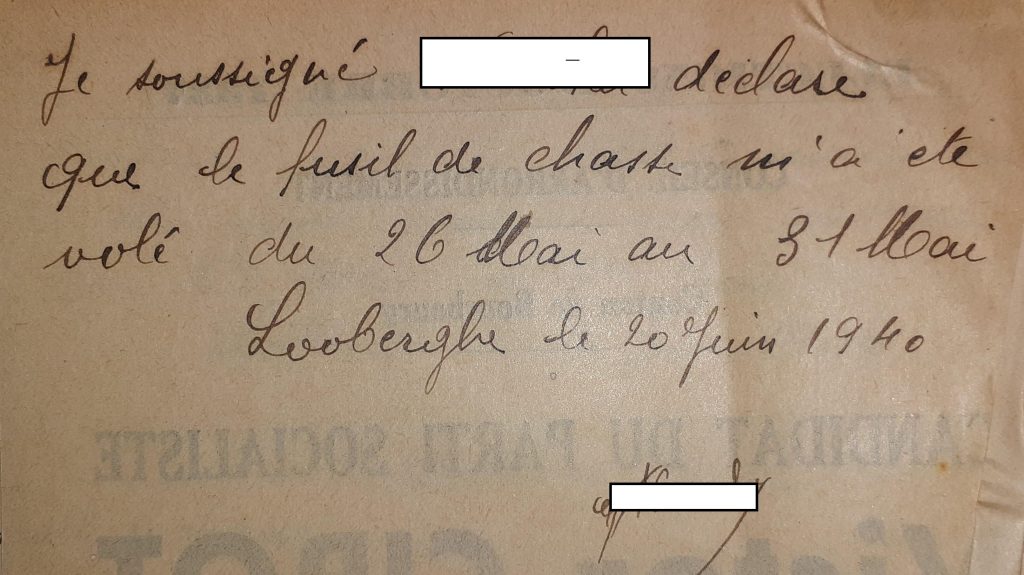 Je soussigné déclare
que le fusil de chasse m'a été
volé du 26 Mai au 31 Mai
Looberghe le 20 Juin 1940
CONSEIL D'ARRONDISSEMENT
CANDIDAT DU PARTI SOCIALISTE